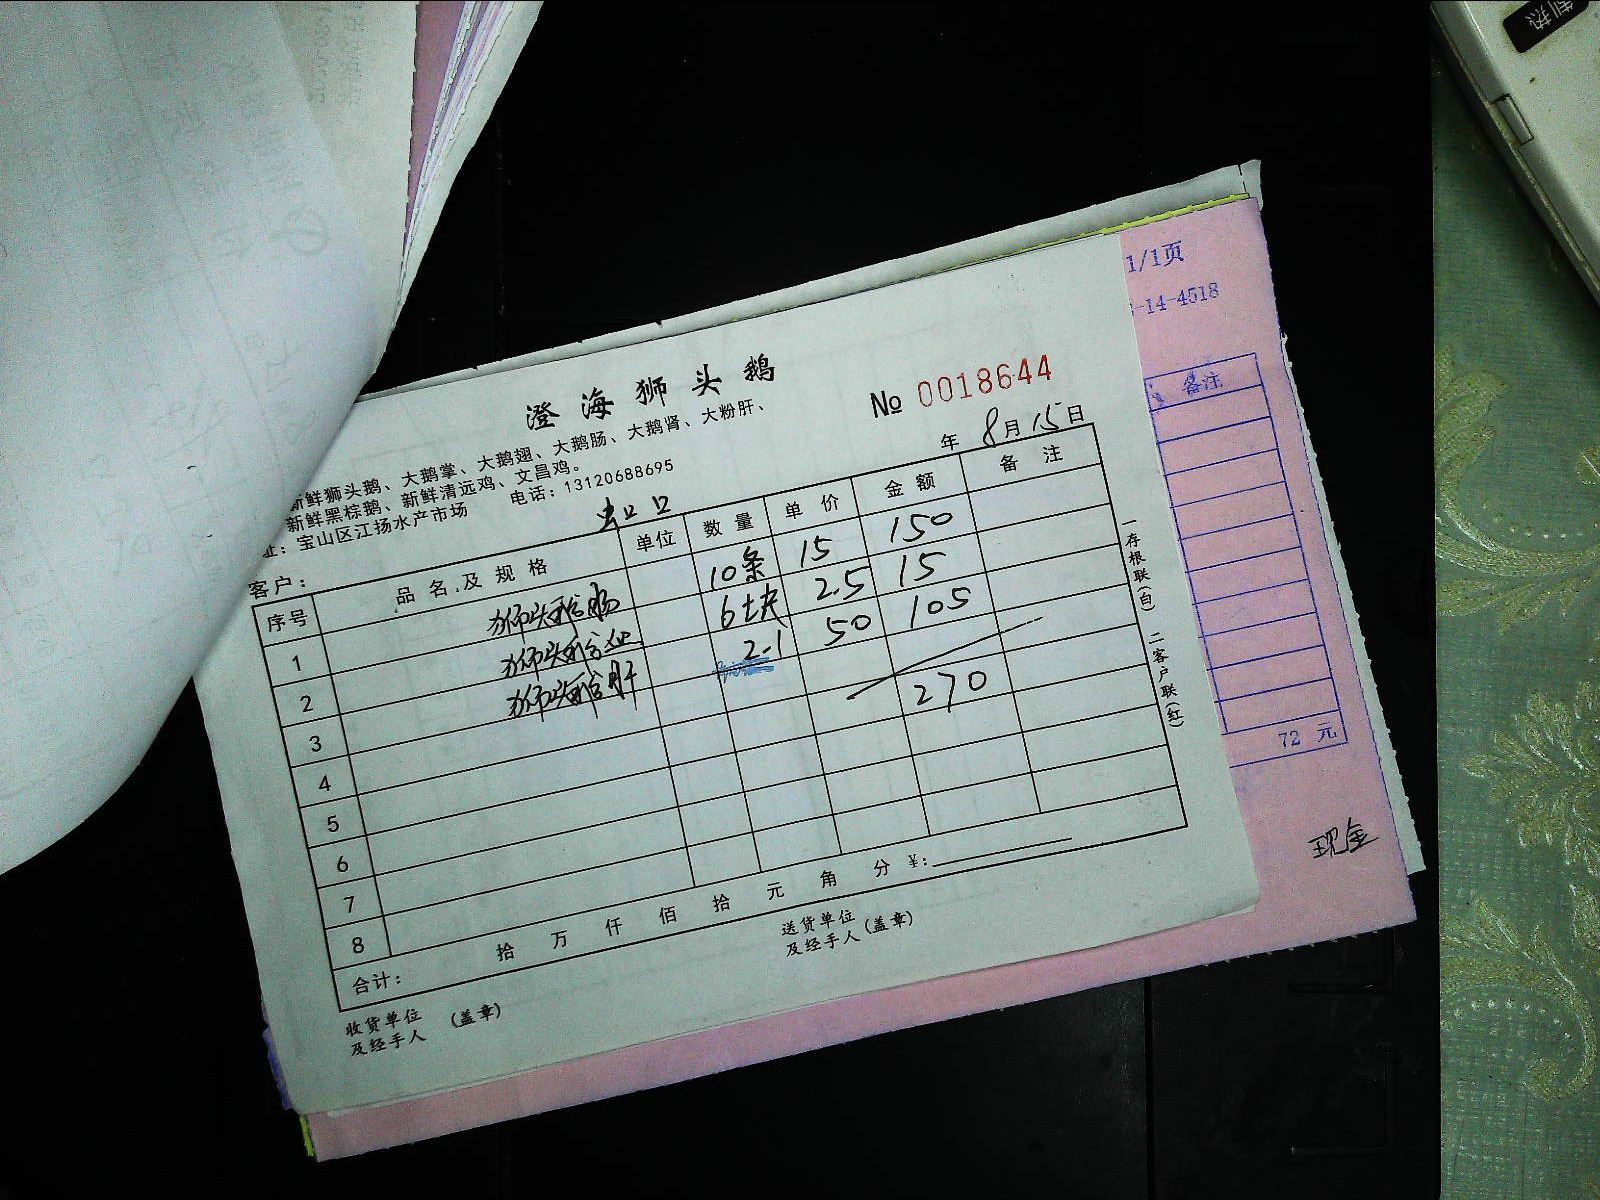 制热
1/1页
-14-4518
备注
澄海狮头鹅
№ 0018644
新鲜狮头鹅、大鹅掌、大鹅翅、大鹅肠、大鹅肾、大粉肝、
新鲜黑棕鹅、新鲜清远鸡、文昌鸡。
址：宝山区江扬水产市场 电话：13120688695
年 8月15日
客户： 出口
序号 品名及规格 单位 数量 单价 金额 备注
1 狮头鹅肠 10条 15 150
2 狮头鹅血 6块 2.5 15
3 狮头鹅肝 2.1 50 105
4 270
5
6
7
8
合计： 拾 万 仟 佰 拾 元 角 分 ¥：
收货单位
及经手人 (盖章)
送货单位
及经手人 (盖章)
一存根联(白) 二客户联(红)
72 元
现金